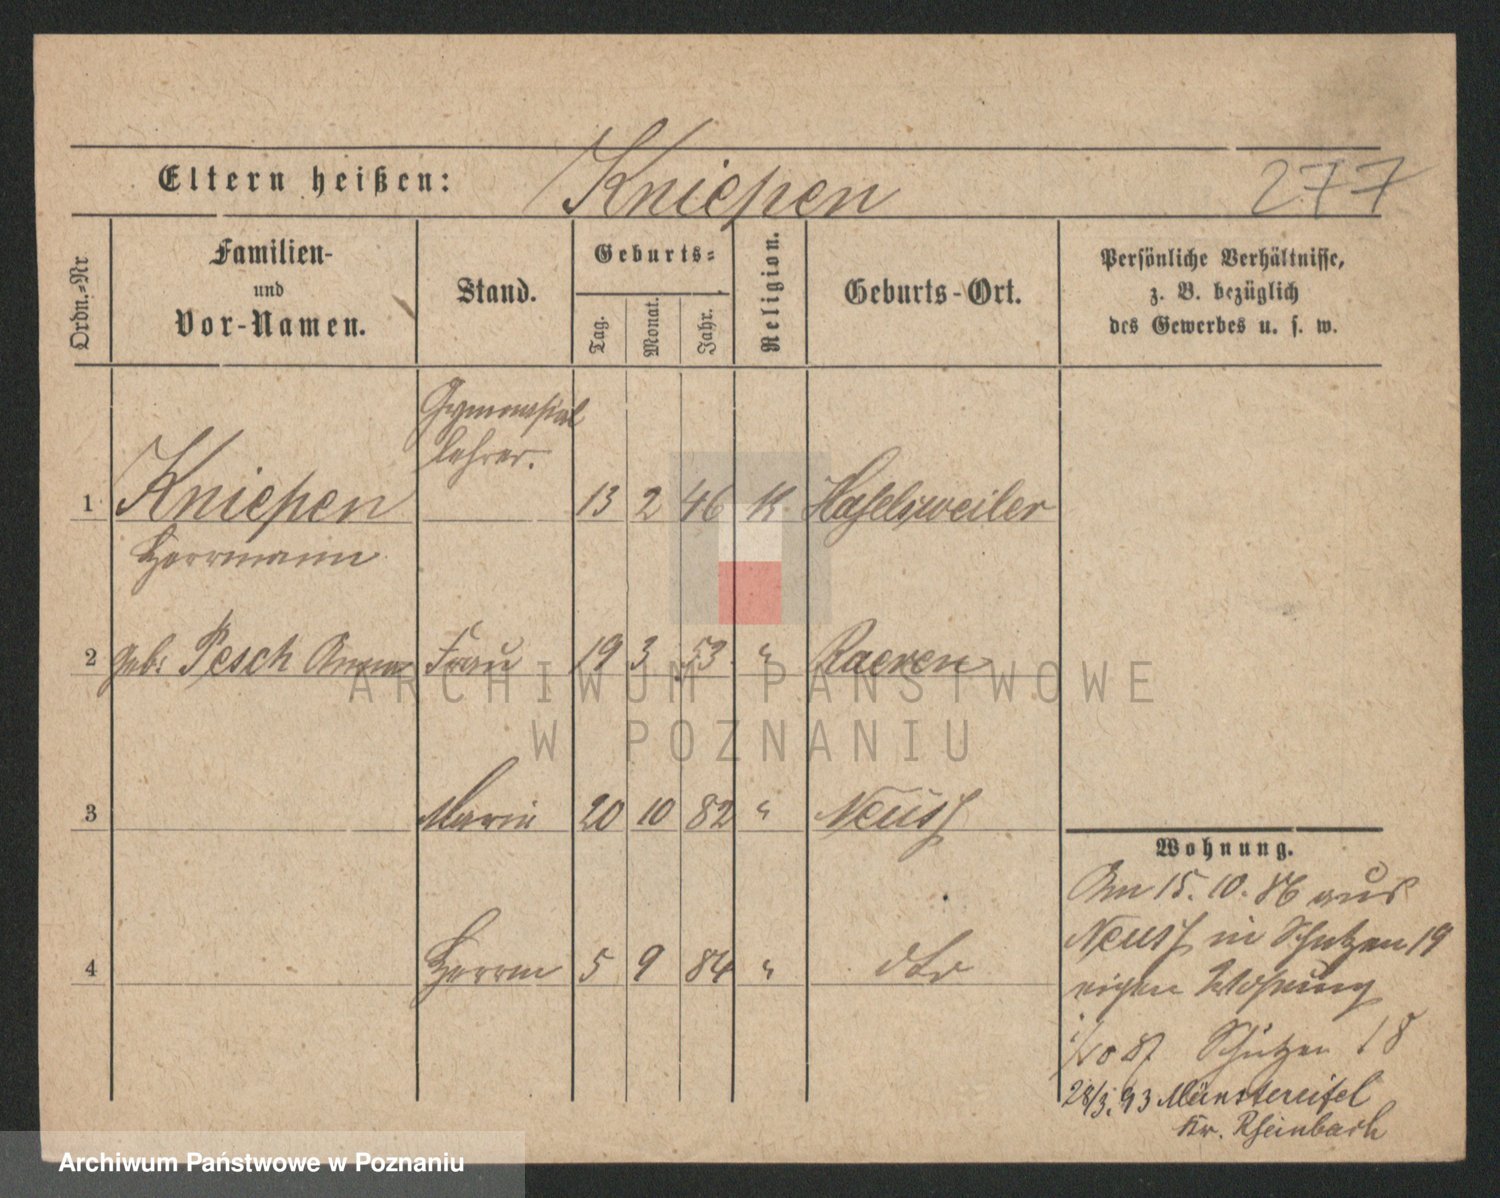 Eltern heißen: Kniepen 277
Ordn.=Nr
Familien-
und
Vor-Namen.
Stand.
Geburts=
Tag.
Monat.
Jahr.
Religion.
Geburts-Ort.
Persönliche Verhältnisse,
z. B. bezüglich
des Gewerbes u. s. w.
Gymnasial
lehrer.
1 Kniepen 13 2 46 K. Hasselsweiler
Herrmann
2 geb: Pesch Anna Frau 19 3 53 " Raeren
3 Marie 20 10 82 " Neuss
Wohnung.
Am 15. 10. 86 aus
Neuss in Schützen 19
eigen Wohnung
4 Herrm 5 9 84 " dto
1/10 87 Schützen 18
28/3. 93 Münstereifel
Kr. Rheinbach
ARCHIWUM PAŃSTWOWE
W POZNANIU
Archiwum Państwowe w Poznaniu